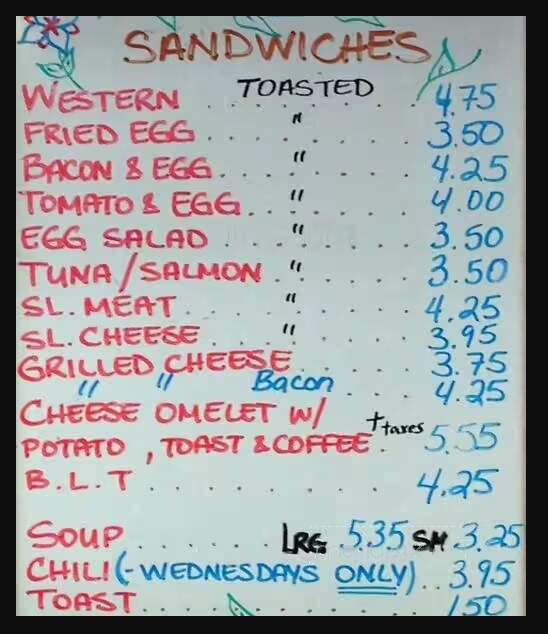 SANDWICHES
WESTERN .. TOASTED ... 4.75
FRIED EGG .... " ..... 3.50
BACON & EGG .... " ..... 4.25
TOMATO & EGG .. " .... 4.00
EGG SALAD ... " .... 3.50
TUNA/SALMON . " .... 3.50
SL. MEAT .... " .... 4.25
SL. CHEESE .... " .... 3.95
GRILLED CHEESE ..... 3.75
" " Bacon ... 4.25
CHEESE OMELET W/
POTATO, TOAST & COFFEE . + taxes 5.55
B.L.T ........ 4.25
SOUP ...... LRG 5.35 SM 3.25
CHILI (-WEDNESDAYS ONLY) .. 3.95
TOAST .......... 1.50